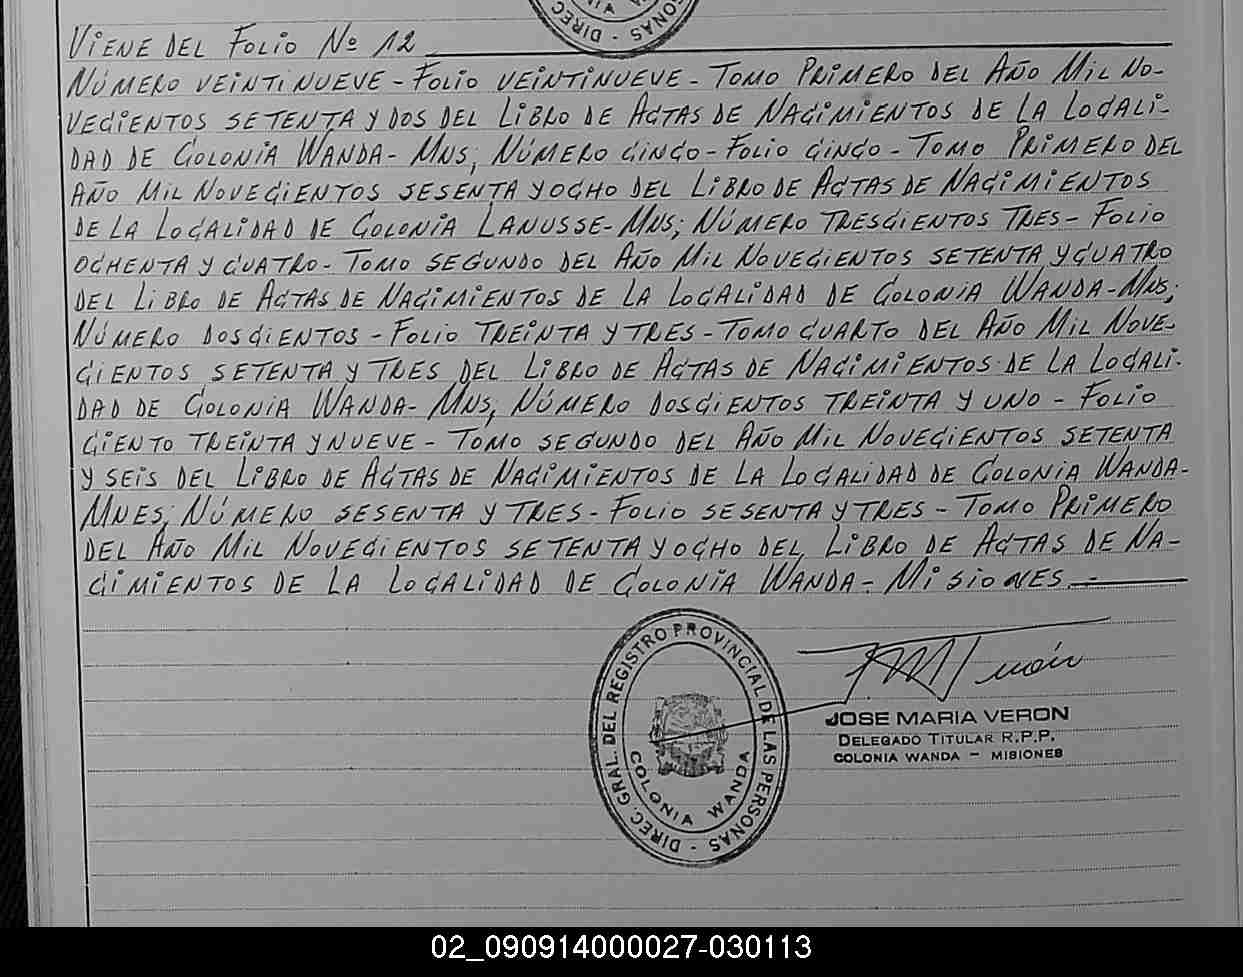 VIENE DEL FOLIO Nº 12
NÚMERO VEINTINUEVE - FOLIO VEINTINUEVE - TOMO PRIMERO DEL AÑO MIL NO-
VECIENTOS SETENTA Y DOS DEL LIBRO DE ACTAS DE NACIMIENTOS DE LA LOCALI-
DAD DE COLONIA WANDA - MNS; NÚMERO CINCO - FOLIO CINCO - TOMO PRIMERO DEL
AÑO MIL NOVECIENTOS SESENTA Y OCHO DEL LIBRO DE ACTAS DE NACIMIENTOS
DE LA LOCALIDAD DE COLONIA LANUSSE - MNS; NÚMERO TRESCIENTOS TRES - FOLIO
OCHENTA Y CUATRO - TOMO SEGUNDO DEL AÑO MIL NOVECIENTOS SETENTA Y CUATRO
DEL LIBRO DE ACTAS DE NACIMIENTOS DE LA LOCALIDAD DE COLONIA WANDA - MNS;
NÚMERO DOSCIENTOS - FOLIO TREINTA Y TRES - TOMO CUARTO DEL AÑO MIL NOVE-
CIENTOS SETENTA Y TRES DEL LIBRO DE ACTAS DE NACIMIENTOS DE LA LOCALI-
DAD DE COLONIA WANDA - MNS; NÚMERO DOSCIENTOS TREINTA Y UNO - FOLIO
CIENTO TREINTA Y NUEVE - TOMO SEGUNDO DEL AÑO MIL NOVECIENTOS SETENTA
Y SEIS DEL LIBRO DE ACTAS DE NACIMIENTOS DE LA LOCALIDAD DE COLONIA WANDA -
MNES; NÚMERO SESENTA Y TRES - FOLIO SESENTA Y TRES - TOMO PRIMERO
DEL AÑO MIL NOVECIENTOS SETENTA Y OCHO DEL LIBRO DE ACTAS DE NA-
CIMIENTOS DE LA LOCALIDAD DE COLONIA WANDA - MISIONES.-
DIREC. GRAL. DEL REGISTRO PROVINCIAL DE LAS PERSONAS -
COLONIA WANDA
JOSE MARIA VERON
DELEGADO TITULAR R.P.P.
COLONIA WANDA - MISIONES
02_090914000027-030113